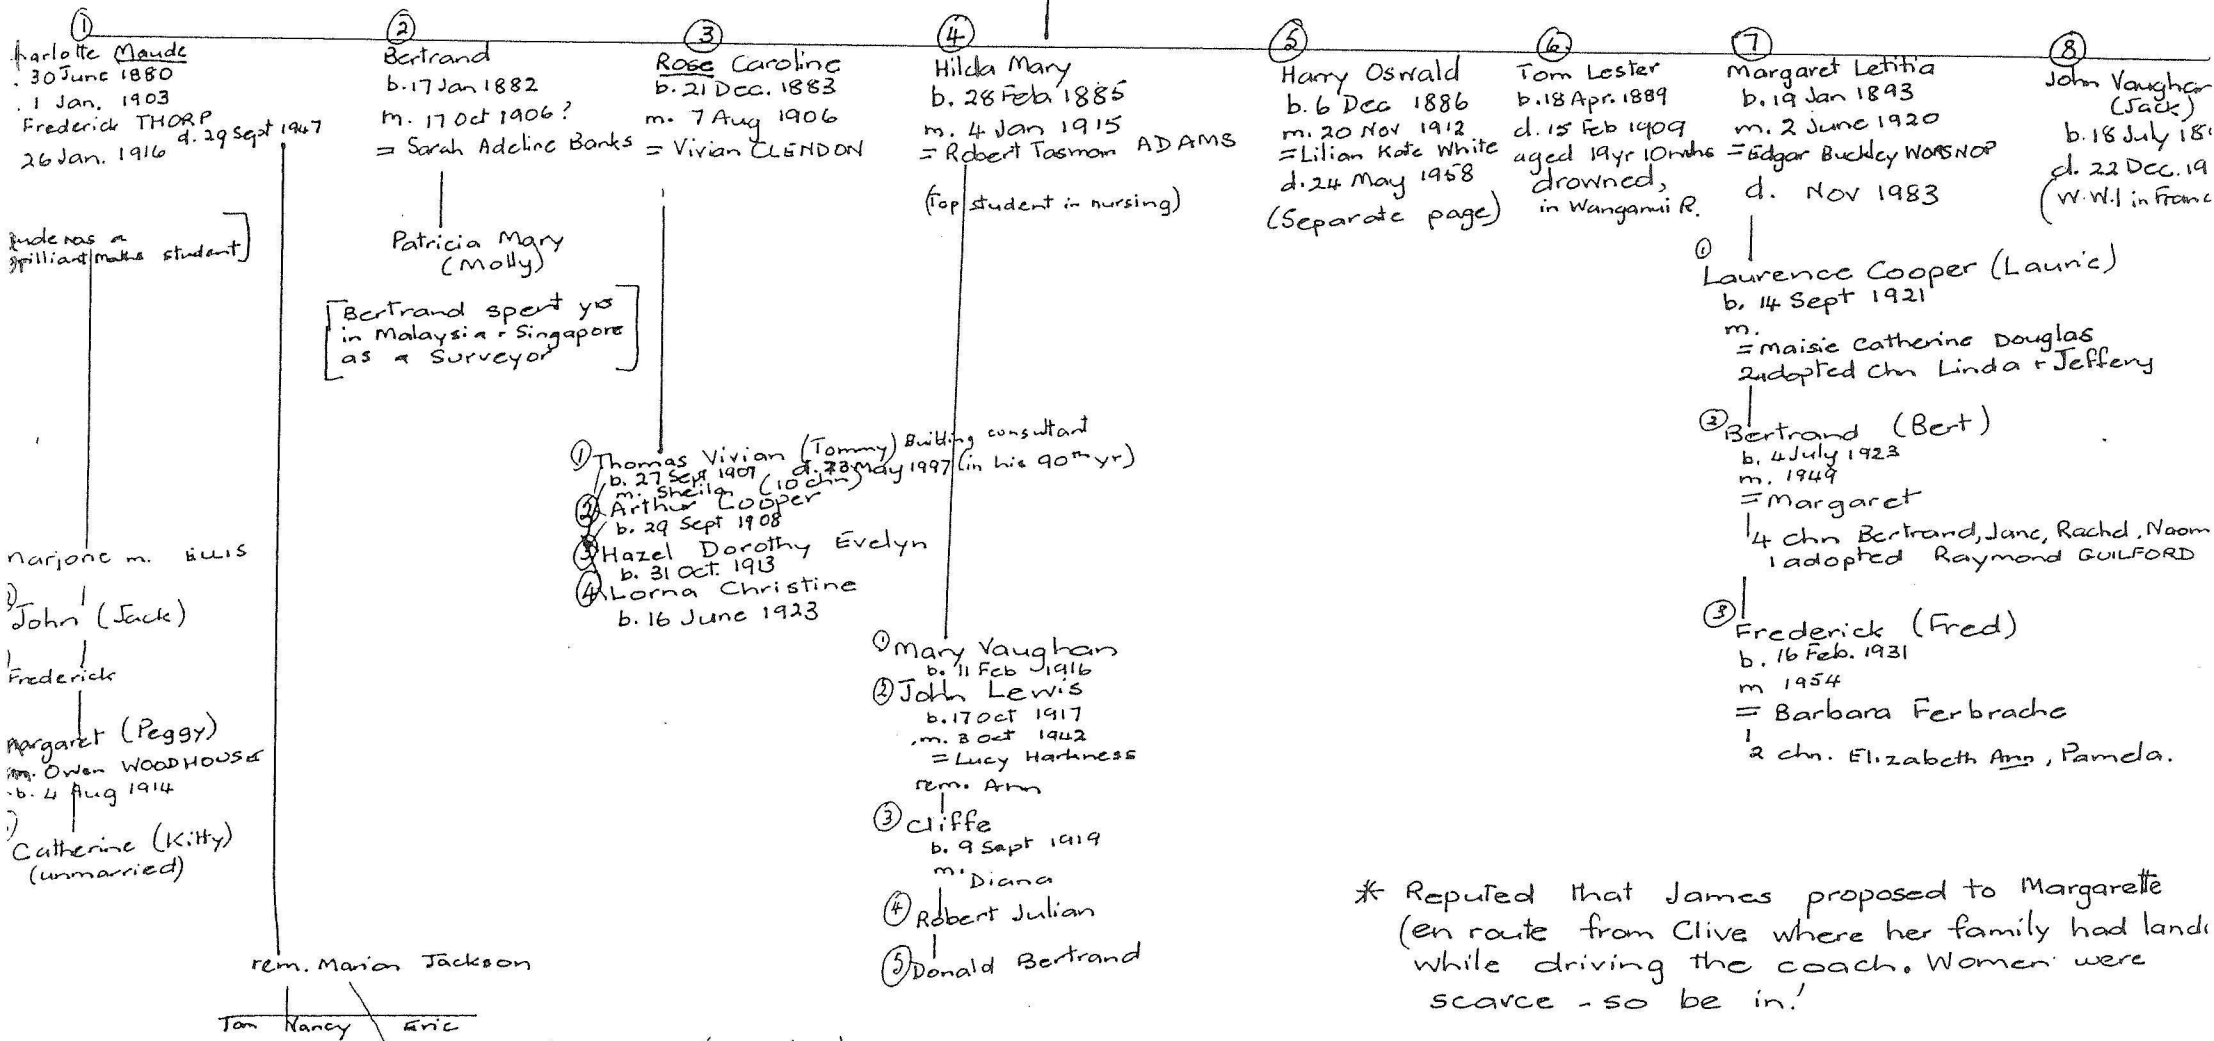 ①
harlotte Maude
. 30 June 1880
. 1 Jan. 1903
Frederick THORP
d. 29 Sept 1947
26 Jan. 1916
brilliant maths student]
marjorie m. ELLIS
John (Jack)
Frederick
margaret (Peggy)
m. Owen WOODHOUSE
b. 4 Aug 1914
Catherine (Kitty)
(unmarried)
rem. Marion Jackson
Tom Nancy Eric
②
Bertrand
b. 17 Jan 1882
m. 17 Oct 1906?
= Sarah Adeline Banks
Patricia Mary
(Molly)
[Bertrand spent yrs
in Malaysia + Singapore
as a Surveyor]
③
Rose Caroline
b. 21 Dec. 1883
m. 7 Aug 1906
= Vivian CLENDON
① Thomas Vivian (Tommy) Building consultant
b. 27 Sept 1907 d. 23 May 1997 (in his 90th yr)
m. Sheila (10 chn)
② Arthur Cooper
b. 29 Sept 1908
③ Hazel Dorothy Evelyn
b. 31 Oct. 1913
④ Lorna Christine
b. 16 June 1923
④
Hilda Mary
b. 28 Feb 1885
m. 4 Jan 1915
= Robert Tasman ADAMS
(Top student in nursing)
① Mary Vaughan
b. 11 Feb 1916
② John Lewis
b. 17 Oct 1917
m. 3 Oct 1942
= Lucy Harkness
rem. Ann
③ Cliffe
b. 9 Sept 1919
m. Diana
④ Robert Julian
⑤ Donald Bertrand
⑤
Harry Oswald
b. 6 Dec 1886
m. 20 Nov 1912
= Lilian Kate White
d. 24 May 1958
(Separate page)
⑥
Tom Lester
b. 18 Apr. 1889
d. 15 Feb 1909
aged 19yr 10mths
drowned,
in Wanganui R.
⑦
Margaret Letitia
b. 19 Jan 1893
m. 2 June 1920
= Edgar Buckley WORSNOP
d. Nov 1983
①
Laurence Cooper (Laurie)
b. 14 Sept 1921
m.
= Maisie Catherine Douglas
2 adopted chn Linda + Jeffery
② Bertrand (Bert)
b. 4 July 1923
m. 1949
= Margaret
4 chn Bertrand, Jane, Rachel, Naom
1 adopted Raymond GUILFORD
③ Frederick (Fred)
b. 16 Feb. 1931
m 1954
= Barbara Ferbrache
2 chn. Elizabeth Ann, Pamela.
⑧
John Vaughan
(Jack)
b. 18 July 18
d. 22 Dec. 19
(W.W.1 in Franc
* Reputed that James proposed to Margarette
(en route from Clive where her family had land
while driving the coach. Women were
scarce - so be in!